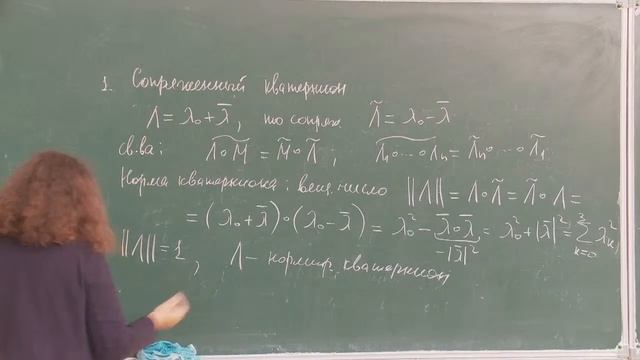 1. Сопряженный кватернион
Λ = λ₀ + λ̄, то сопряж. Λ̃ = λ₀ − λ̄
св-ва: \widetilde{Λ∘M} = M̃∘Λ̃, \widetilde{Λ₁∘...∘Λₙ} = Λ̃ₙ∘...∘Λ̃₁
Норма кватерниона: вещ. число ||Λ|| = Λ∘Λ̃ = Λ̃∘Λ =
= (λ₀ + λ̄)∘(λ₀ − λ̄) = λ₀² − \underbrace{λ̄∘λ̄}_{−|λ̄|²} = λ₀² + |λ̄|² = \sum_{k=0}^{3} λₖ²
||Λ|| = 1, Λ – нормир. кватернион